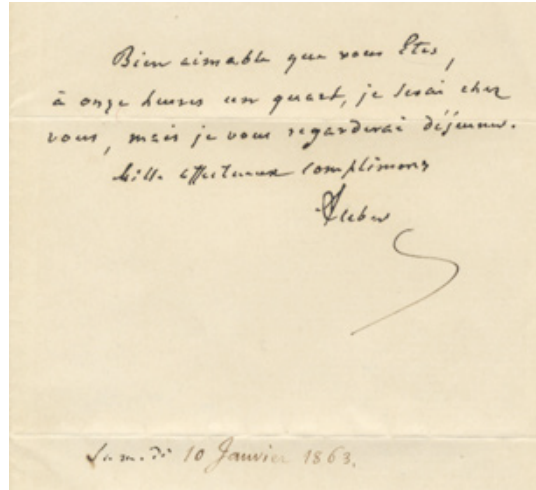 Bien aimable que vous êtes,
à onze heures un quart, je serai chez
vous, mais je vous regarderai déjeuner.
Mille affectueux complimens
Samedi 10 Janvier 1863.